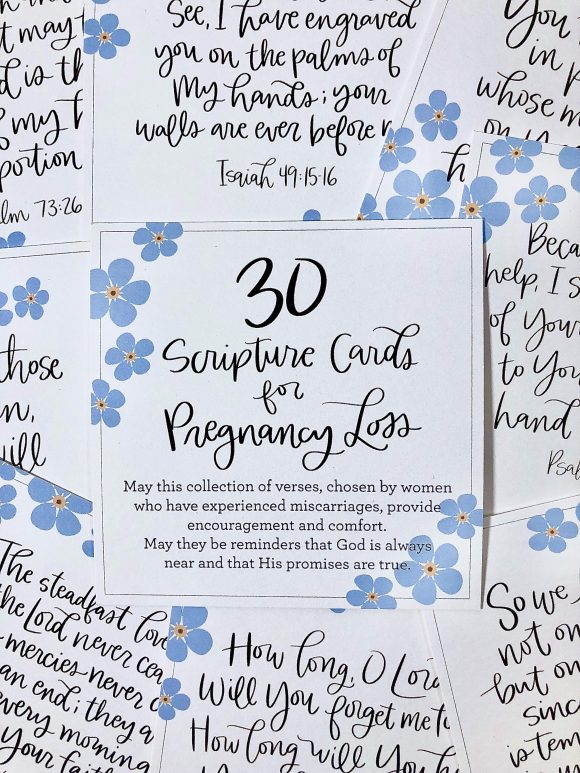 t may
d is th
my h
portion
lm 73:26
See, I have engraved
you on the palms of
My hands; your
walls are ever before
Isaiah 49:15-16
You
in p
whose m
on y
h
Beca
help, I s
of Your
to You
hand
Psa
those
n,
will
30
Scripture Cards
for
Pregnancy Loss
May this collection of verses, chosen by women
who have experienced miscarriages, provide
encouragement and comfort.
May they be reminders that God is always
near and that His promises are true.
The steadfast love
the Lord never cea
mercies never c
an end; they a
every morning
Your faith
How long, O Lord
Will You forget me fo
How long will You h
So we
not on
but on
sinc
is tem